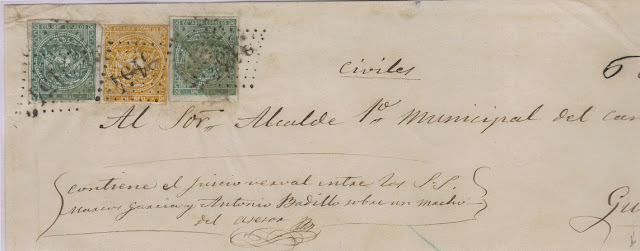 Civiles
Al Sor. Alcalde 1º Municipal del can
contiene el juicio verval entre los S.S.
Marcos Garcia y Antonio Badillo sobre un macho
del asesor
Gu